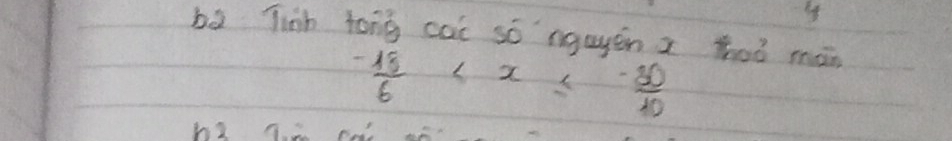 b2 Tính tổng các số nguyên x thoả mãn
-18/6 < x ≤ -30/10